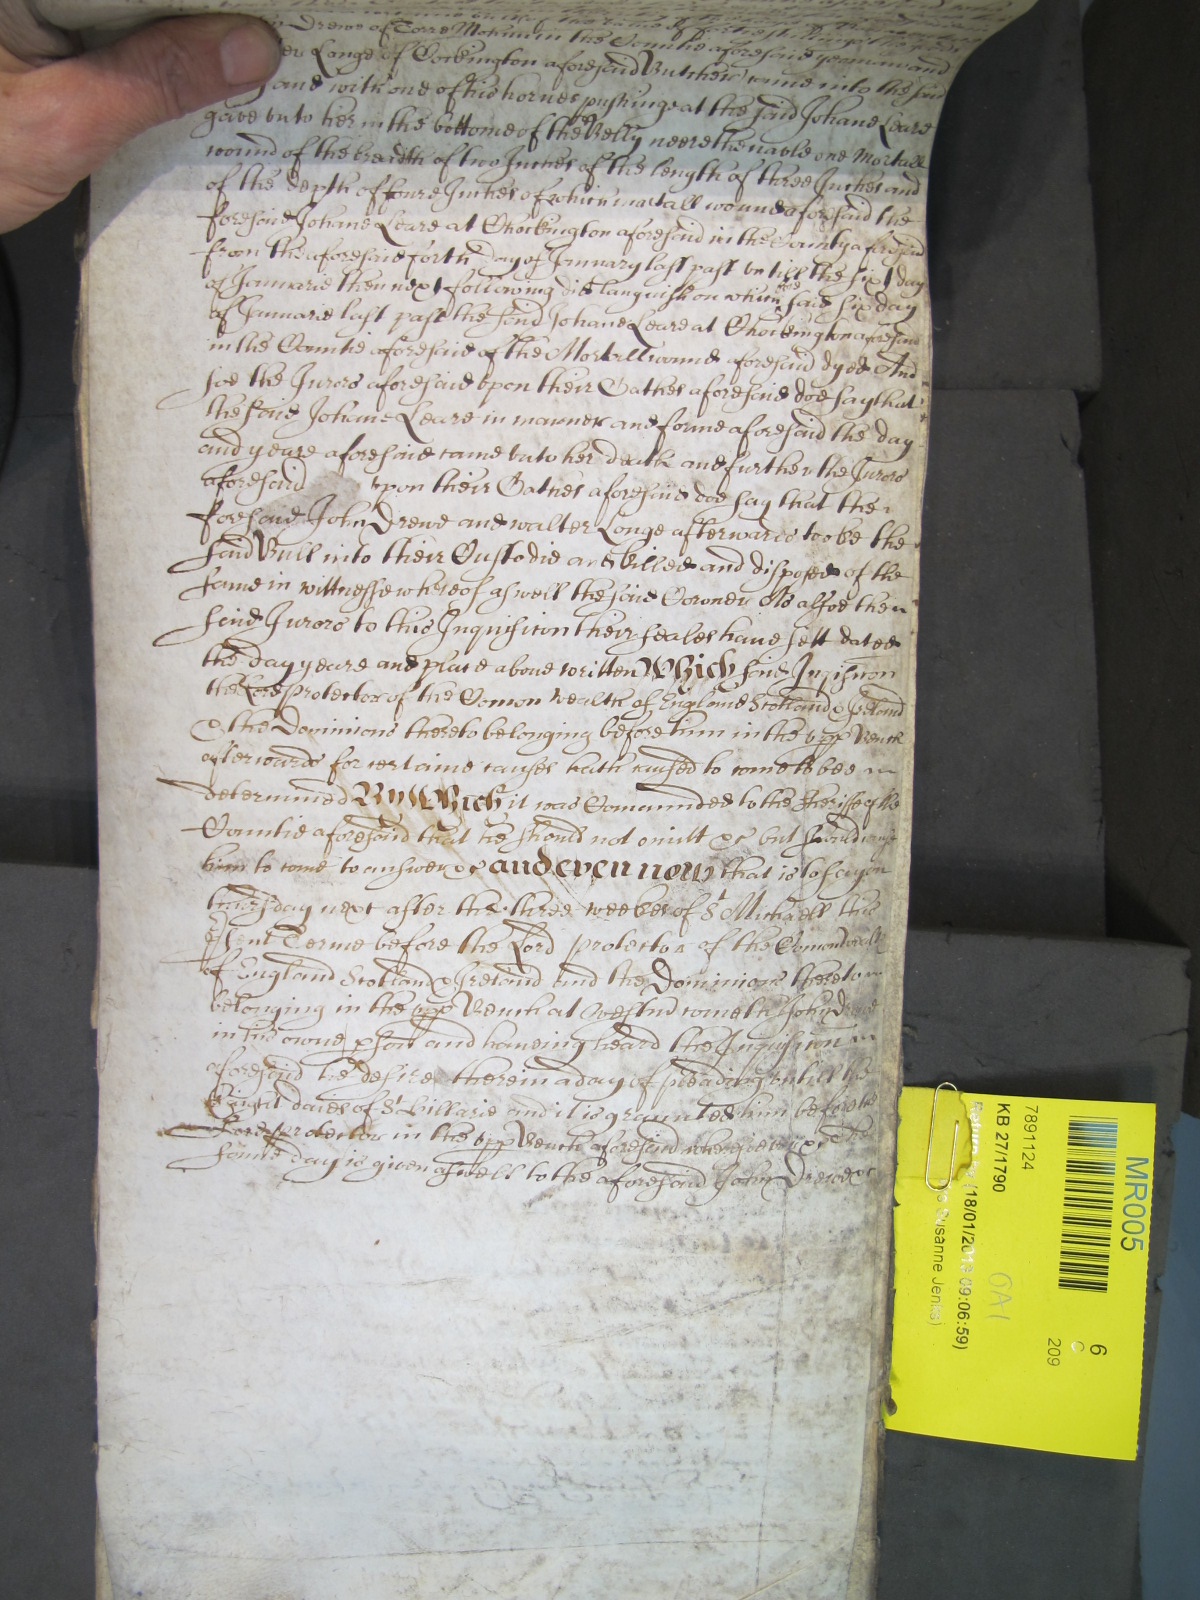 Drewe of Torre Mohun in the Countie aforesaid yeoman and
Longe of Cockington aforesaid Butcher came into the said
and with one of his hornes pushinge at the said Johane Leare
gave unto her in the bottome of the Belly neere the navle one Mortall
wound of the breadth of two Inches of the length of three Inches and
of the depth of foure Inches of which mortall wound aforesaid the
foresaid Johane Leare at Chockington aforesaid in the County aforesaid
from the aforesaid forth day of January last past untill the sixt day
of Januarie then next following did languish on which said six day
of Januarie last past the said Johane Leare at Chockington aforesaid
in the Countie aforesaid of the Mortall wound aforesaid dyed And
soe the Jurors aforesaid upon their Oathes aforesaid doe say that
the said Johane Leare in manner and forme aforesaid the day
and yeare aforesaid came unto her death and further the Jurors
aforesaid upon their Oathes aforesaid doe say that the
foresaid John Drewe and walter Longe afterwards tooke the
said Bull into their Custodie and killed and disposed of the
same in wittnesse whereof aswell the said Coroner As alsoe the
said Jurors to this Inquisicon their seales have sett dated
the day yeare and place above written Which said Inqisicon
the Lord protector of the Comon wealth of England Scotland & Ireland
& the Dominions thereto belonging before him in the upp Bench
afterwards for certaine causes hath caused to come to bee
determined By Which it was Comaunded to the Sheriffe of the
Countie aforesaid that he should not omitt &c but should cause
him to come to answer &c and even now that is to say on
thursday next after the three weekes of St Michaell this
psent Terme before the Lord protector of the Comonwealth
of England Scotland & Ireland and the Dominions thereto
belonging in the upp Bench at Westmr cometh John Drewe
in his owne pson and haveing heard the Inquisicon
aforesaid he desired therein a day of pleading untill the
Eight daies of St hillarie and it is graunted him before the
Lord protector in the upp Bench aforesaid wheresoever &c The
same day is given aswell to the aforesaid John Drewe &c
MR005
7891124
KB 27/1790
6
C
209
(18/01/2018 09:06:59)
Susanne Jenks)